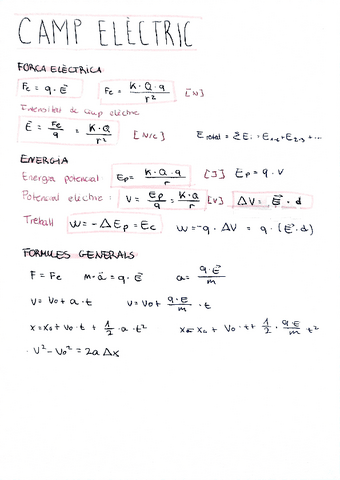 CAMP ELÈCTRIC
FORÇA ELÈCTRICA
Fe = q · E⃗    Fe = K·Q·q / r²    [N]
Intensitat de camp elèctric
E⃗ = Fe / q = K·Q / r²    [N/C]    E total = ΣE
ENERGIA
Energia potencial: Ep = K·Q·q / r    [J]    Ep = q · V
Potencial elèctric: V = Ep / q = K·Q / r    [V]    ΔV = E⃗ · d
Treball    W = -ΔEp = Ec    W = -q · ΔV = q · (E⃗·d)
FÓRMULES GENERALS
F = Fe    m·a⃗ = q·E⃗    a = q·E⃗ / m
V = V₀ + a·t    V = V₀ + q·E / m · t
x = x₀ + V₀·t + 1/2 · a · t²    x = x₀ + V₀·t + 1/2 · q·E / m t²
· V² - V₀² = 2a Δx